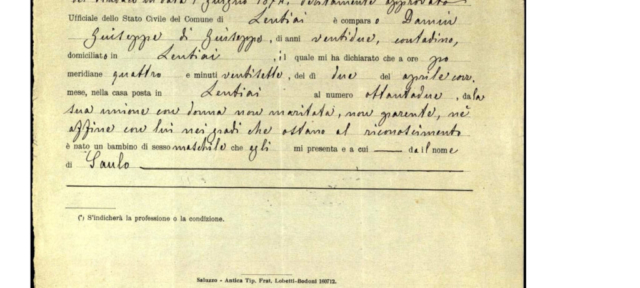 del Sindaco in data 1 giugno 1874, debitamente approvato
Ufficiale dello Stato Civile del Comune di Lentiai è comparso Damin
Giuseppe di Giuseppe, di anni ventidue, contadino,
domiciliato in Lentiai, il quale mi ha dichiarato che a ore po
meridiane quattro e minuti ventisette, del dì due del aprile corr.
mese, nella casa posta in Lentiai al numero ottantadue, dala
sua unione con donna non maritata, non parente, nè
affine con lui nei gradi che ostano al riconoscimento
è nato un bambino di sesso maschile che egli mi presenta e a cui — dà il nome
di Paulo
(¹) S'indicherà la professione o la condizione.
Saluzzo - Antica Tip. Frat. Lobetti-Bodoni